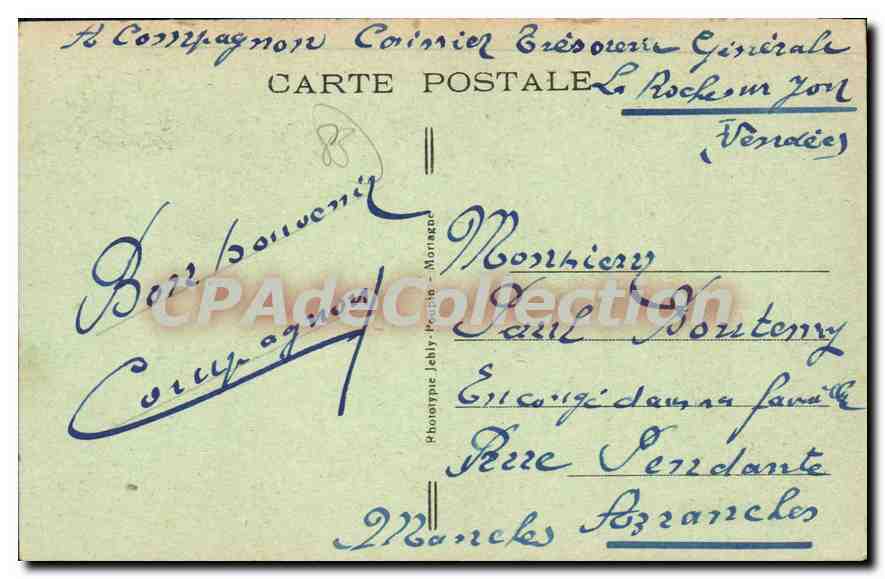 A Compagnon Caissier Trésorerie Générale
La Roche sur Yon
(Vendée)
CARTE POSTALE
85
Bon souvenir
Compagnon
CPAdeCollection
Phototypie Jehly-Poupin - Mortagne
Monsieur
Paul
En congé dans sa famille
Pendante
Avranches